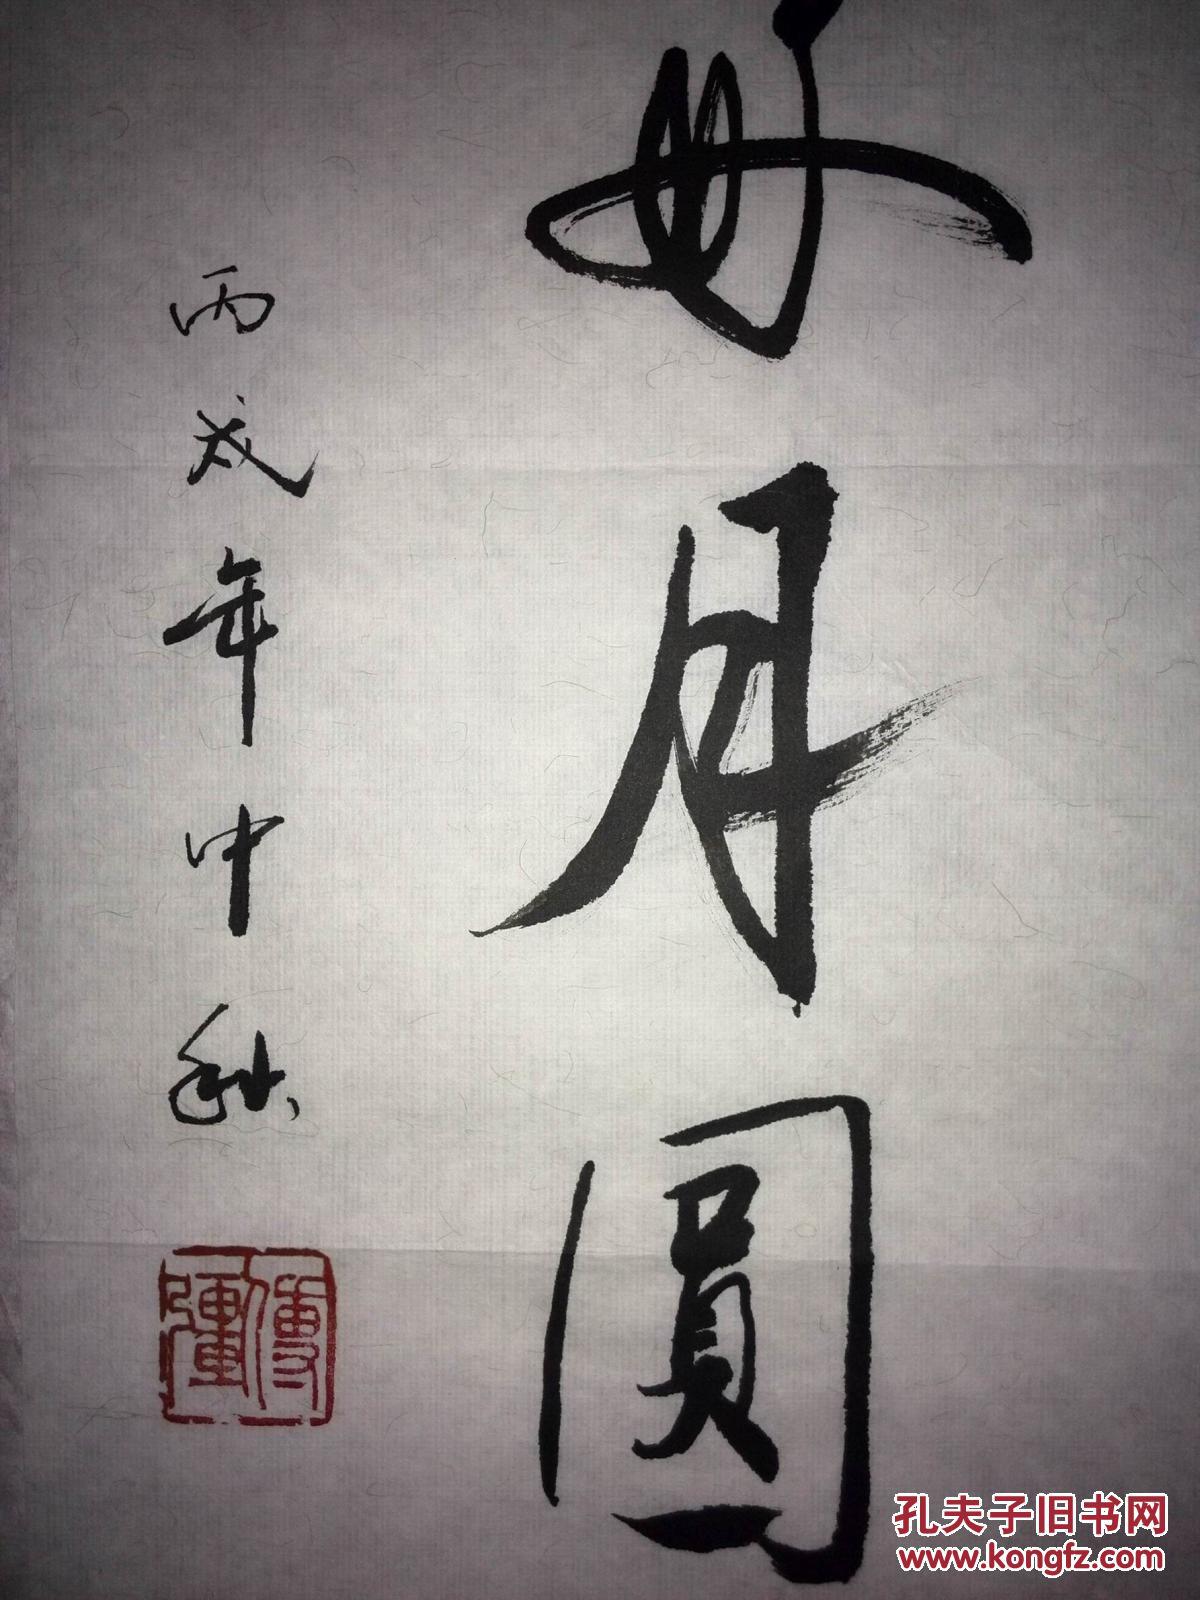 好月圓
丙戌年中秋
孔夫子旧书网
www.kongfz.com